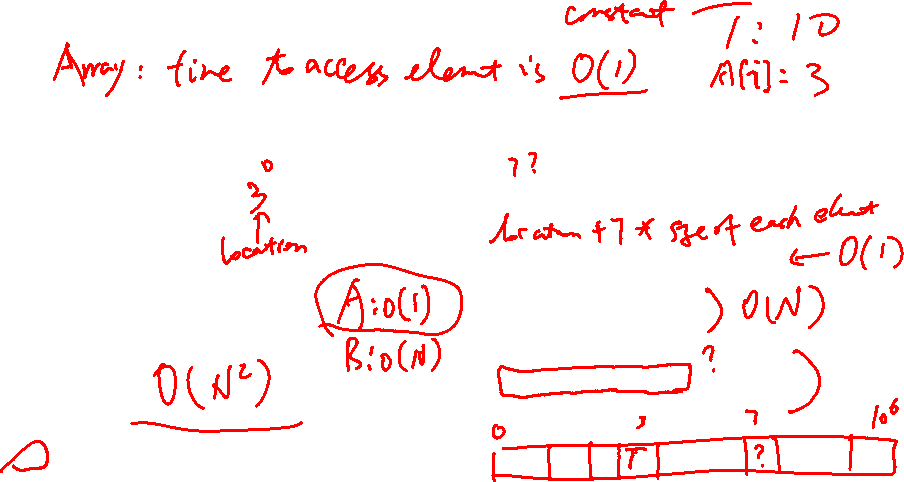 constant
Array: time to access element is O(1)
T: 10
A[i]=3
0
3
location
7??
location + 7 * size of each element
← O(1)
A: O(1)
B: O(N)
) O(N)
O(N²)
?
0 3 7 10⁶
T ?